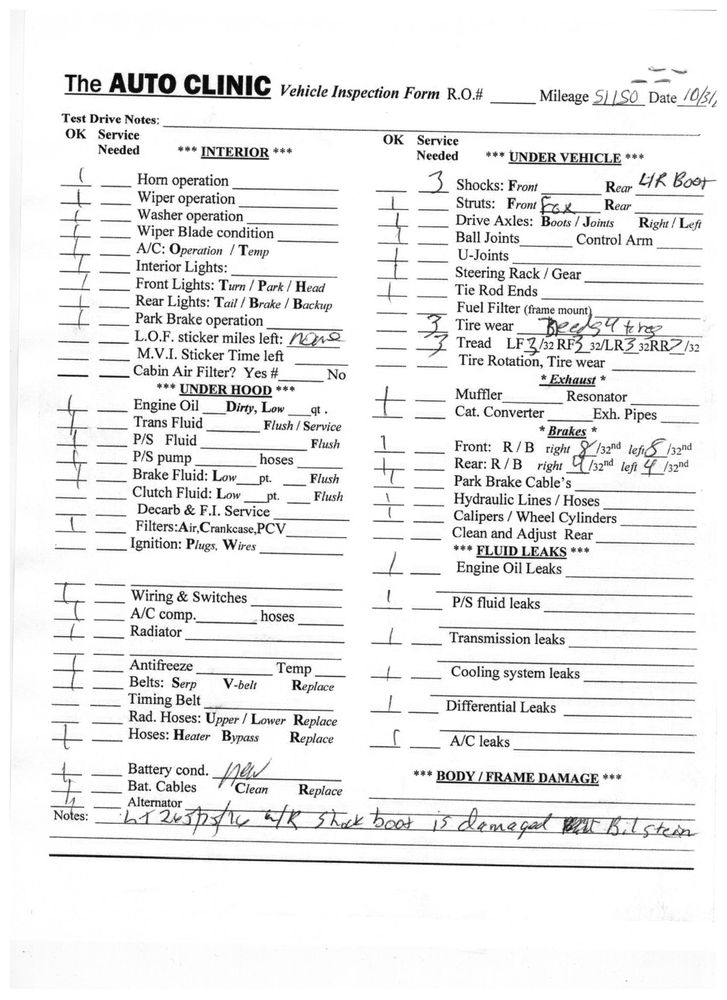 The AUTO CLINIC Vehicle Inspection Form R.O.# ______ Mileage 51150 Date 10/31/
Test Drive Notes:
OK Service Needed *** INTERIOR ***
Horn operation
Wiper operation
Washer operation
Wiper Blade condition
A/C: Operation / Temp
Interior Lights:
Front Lights: Turn / Park / Head
Rear Lights: Tail / Brake / Backup
Park Brake operation
L.O.F. sticker miles left: none
M.V.I. Sticker Time left
Cabin Air Filter? Yes # ______ No
*** UNDER HOOD ***
Engine Oil ___ Dirty, Low ___ qt .
Trans Fluid ________ Flush / Service
P/S Fluid ________ Flush
P/S pump ________ hoses
Brake Fluid: Low ___ pt. ___ Flush
Clutch Fluid: Low ___ pt. ___ Flush
Decarb & F.I. Service
Filters:Air,Crankcase,PCV
Ignition: Plugs, Wires
Wiring & Switches
A/C comp. ________ hoses
Radiator
Antifreeze ________ Temp
Belts: Serp V-belt Replace
Timing Belt
Rad. Hoses: Upper / Lower Replace
Hoses: Heater Bypass Replace
Battery cond. new
Bat. Cables Clean Replace
Alternator
OK Service Needed *** UNDER VEHICLE ***
3 Shocks: Front ________ Rear L/R Boot
Struts: Front Fox Rear
Drive Axles: Boots / Joints Right / Left
Ball Joints ________ Control Arm
U-Joints
Steering Rack / Gear
Tie Rod Ends
Fuel Filter (frame mount)
3 Tire wear needs 4 tires
3 Tread LF 3/32 RF 3 32/LR 3 32RR 2/32
Tire Rotation, Tire wear
* Exhaust *
Muffler ________ Resonator
Cat. Converter ________ Exh. Pipes
* Brakes *
Front: R / B right 8 /32nd left 8 /32nd
Rear: R / B right 4 /32nd left 4 /32nd
Park Brake Cable's
Hydraulic Lines / Hoses
Calipers / Wheel Cylinders
Clean and Adjust Rear
*** FLUID LEAKS ***
Engine Oil Leaks
P/S fluid leaks
Transmission leaks
Cooling system leaks
Differential Leaks
A/C leaks
*** BODY / FRAME DAMAGE ***
Notes: LT 265/75/16 L/R shock boot is damaged Bilstein